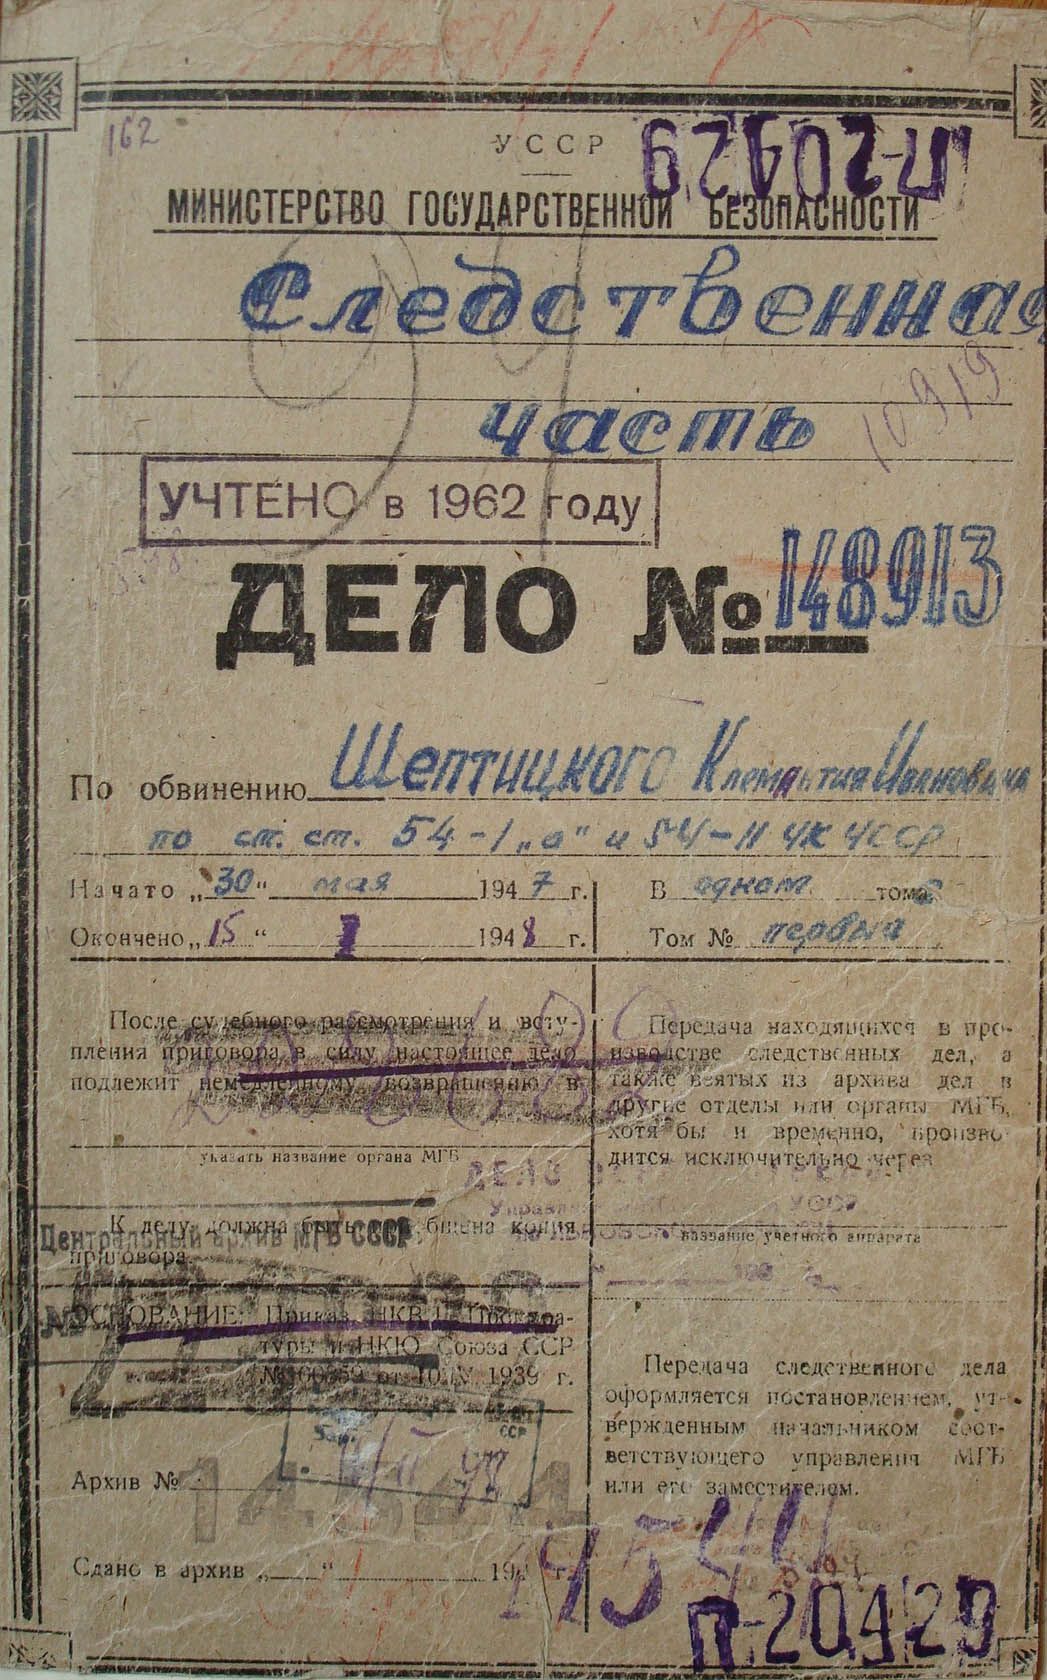 162
УССР
П-20429
МИНИСТЕРСТВО ГОСУДАРСТВЕННОЙ БЕЗОПАСНОСТИ
Следственная
часть
10919
УЧТЕНО в 1962 году
ДЕЛО № 148913
По обвинению Шептицкого Клементия Ивановича
по ст. ст. 54-1 „а" и 54-11 УК УССР
Начато „30" мая 1947 г.
Окончено „15" 1948 г.
В одном томе
Том № первый
После судебного рассмотрения и всту-
пления приговора в силу настоящее дело
подлежит немедленному возвращению в
указать название органа МГБ
К делу должна быть приобщена копия
приговора.
Центральный архив МГБ СССР
ОСНОВАНИЕ: Приказ НКВД, Прокура-
туры и НКЮ Союза ССР
от 10.IV 1939 г.
Архив №
14544
Сдано в архив „ " 194 г.
Передача находящихся в про-
изводстве следственных дел, а
также взятых из архива дел в
другие отделы или органы МГБ,
хотя бы и временно, произво-
дится исключительно через
ДЕЛО
название учетного аппарата
Передача следственного дела
оформляется постановлением, ут-
вержденным начальником соот-
ветствующего управления МГБ
или его заместителем.
П-20429